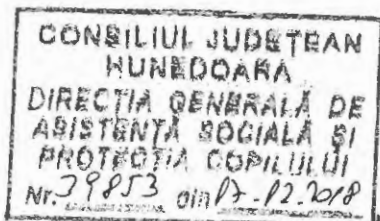 CONSILIUL JUDEȚEAN
HUNEDOARA
DIRECȚIA GENERALĂ DE
ASISTENȚĂ SOCIALĂ ȘI
PROTECȚIA COPILULUI
Nr. 39853 din 17-12.2018